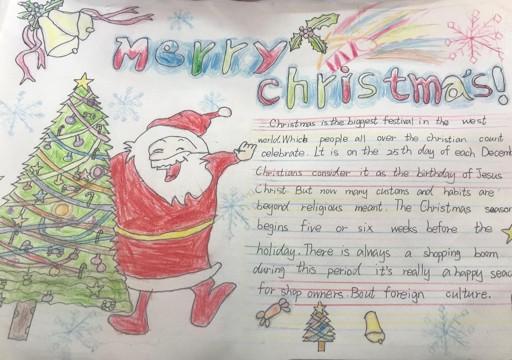 Merry
christmas!
Christmas is the biggest festival in the west
world. Which people all over the christian count
celebrate. It is on the 25th day of each Decemb
Christians consider it as the birthday of Jesus
Christ. But now many customs and habits are
beyond religious meant. The Christmas season
begins five or six weeks before the
holiday. There is always a shopping boom
during this period it's really a happy seac
for shop owners. Bout foreign culture.